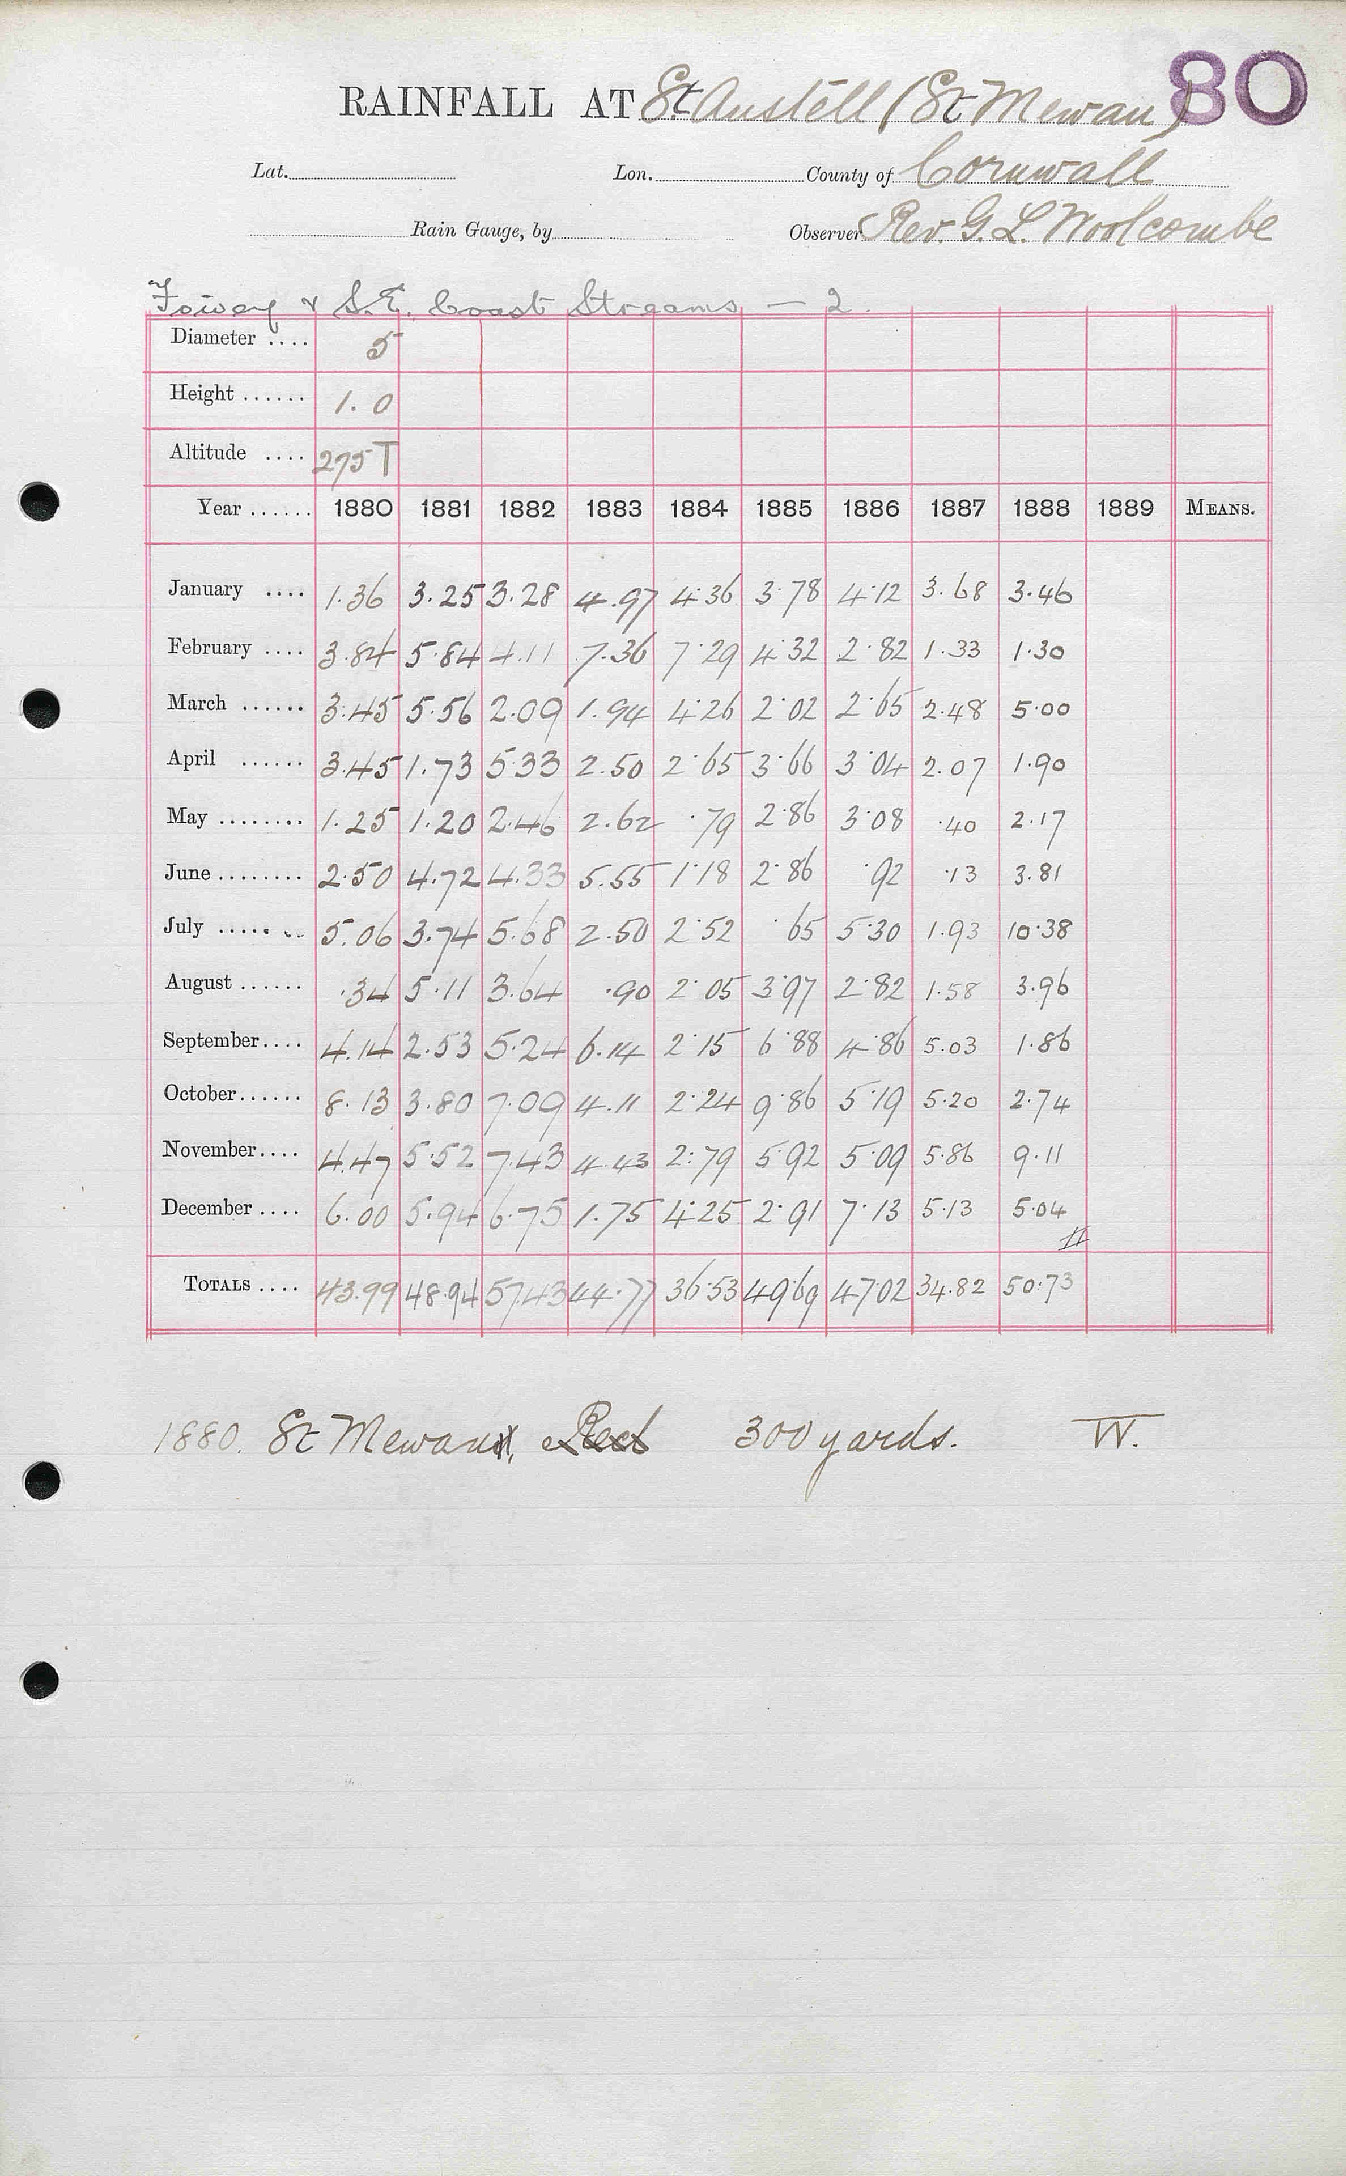 80
RAINFALL AT St Austell (St Mewan)
Lat. Lon. County of Cornwall
Rain Gauge, by Observer Rev. G. L. Woolcombe
Fowey & S.E. Coast Streams — 2.
Diameter .... 5
Height ...... 1.0
Altitude .... 275 T
Year ...... 1880 1881 1882 1883 1884 1885 1886 1887 1888 1889 MEANS.
January .... 1.36 3.25 3.28 4.97 4.36 3.78 4.12 3.68 3.46
February .... 3.84 5.84 4.11 7.36 7.29 4.32 2.82 1.33 1.30
March ...... 3.45 5.56 2.09 1.94 4.26 2.02 2.65 2.48 5.00
April ...... 3.45 1.73 5.33 2.50 2.65 3.66 3.04 2.07 1.90
May ........ 1.25 1.20 2.46 2.62 .79 2.86 3.08 .40 2.17
June ........ 2.50 4.72 4.33 5.55 1.18 2.86 .92 .13 3.81
July ........ 5.06 3.74 5.68 2.50 2.52 .65 5.30 1.93 10.38
August ...... .34 5.11 3.64 .90 2.05 3.97 2.82 1.58 3.96
September .... 4.14 2.53 5.24 6.14 2.15 6.88 4.86 5.03 1.86
October ...... 8.13 3.80 7.09 4.11 2.24 9.86 5.19 5.20 2.74
November .... 4.47 5.52 7.43 4.43 2.79 5.92 5.09 5.86 9.11
December .... 6.00 5.94 6.75 1.75 4.25 2.91 7.13 5.13 5.04
TOTALS .... 43.99 48.94 57.43 44.77 36.53 49.69 47.02 34.82 50.73
1880. St Mewan, 300 yards. W.